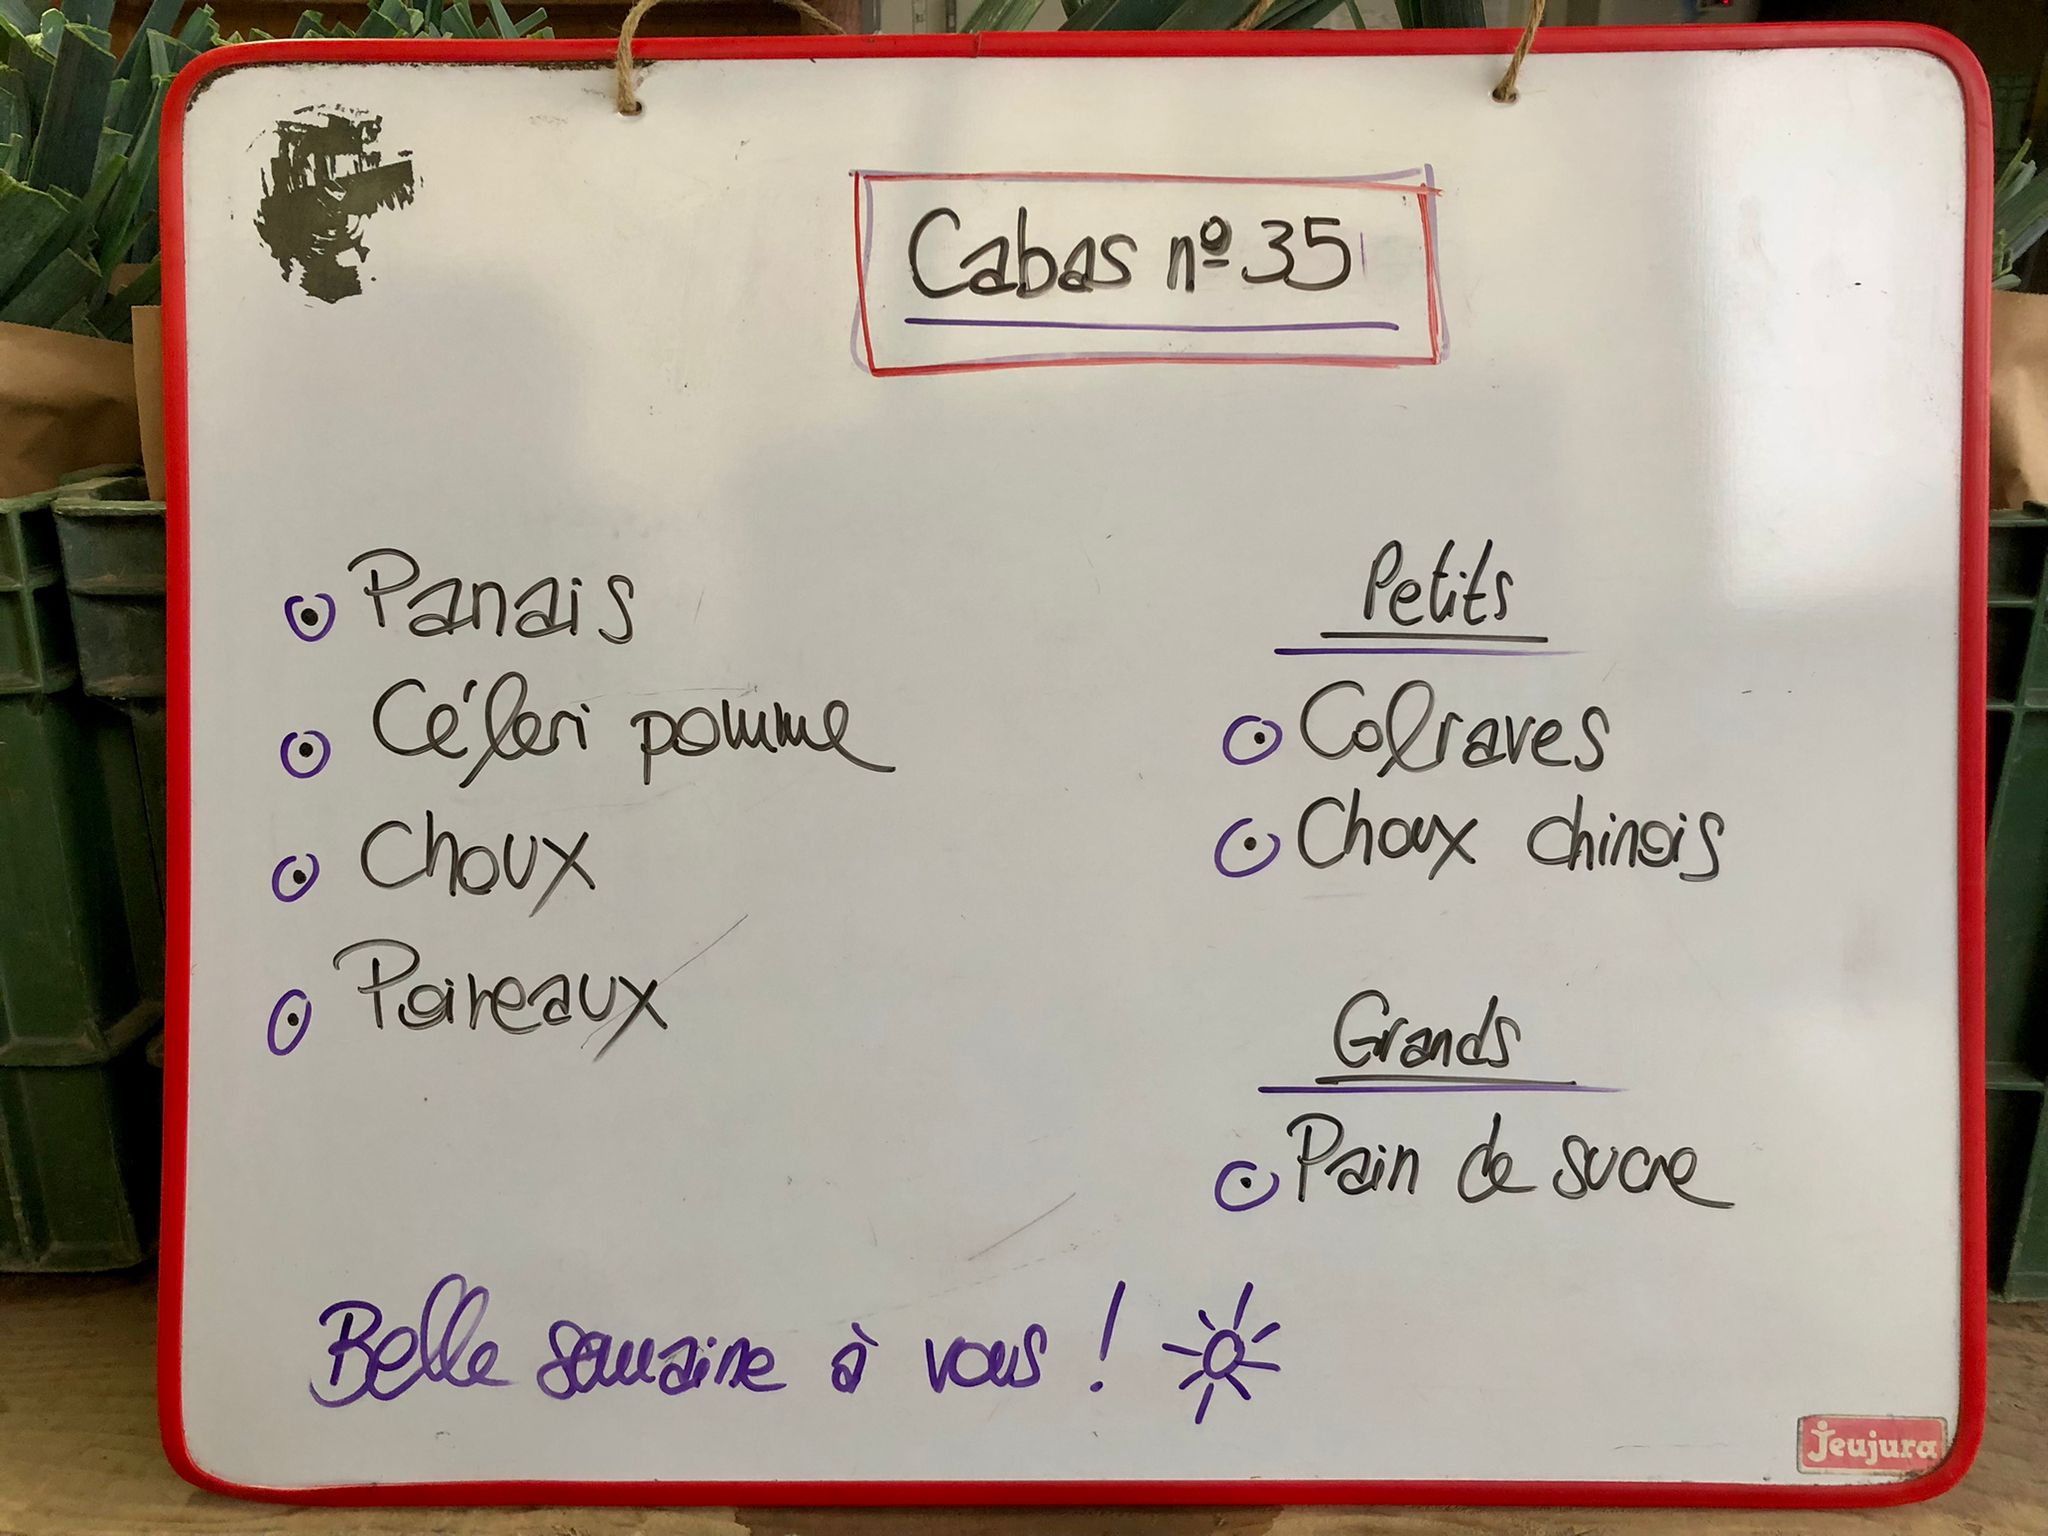 Cabas nº 35
Panais
Céleri pomme
Choux
Poireaux
Petits
Colraves
Choux chinois
Grands
Pain de sucre
Belle semaine à vous !
Jeujura